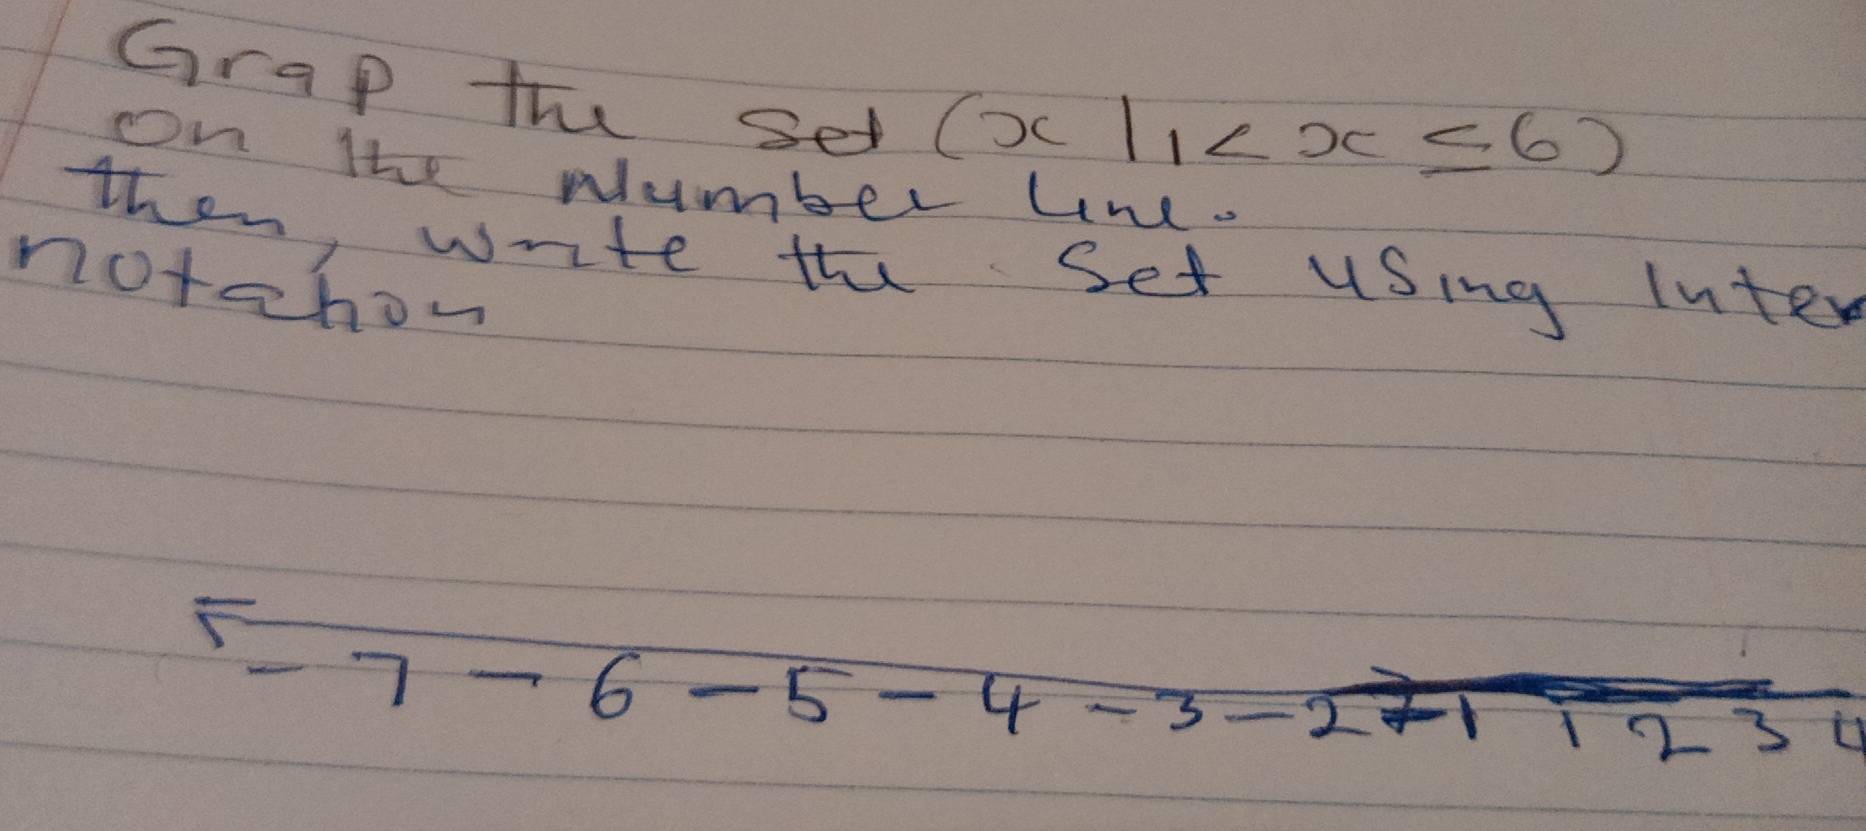 Grap the set (x | 1 < x ≤ 6)
on the Number line.
then, write the Set using Inter
notation
- 7 - 6 - 5 - 4 - 3 - 2 - 1 1 2 3 4